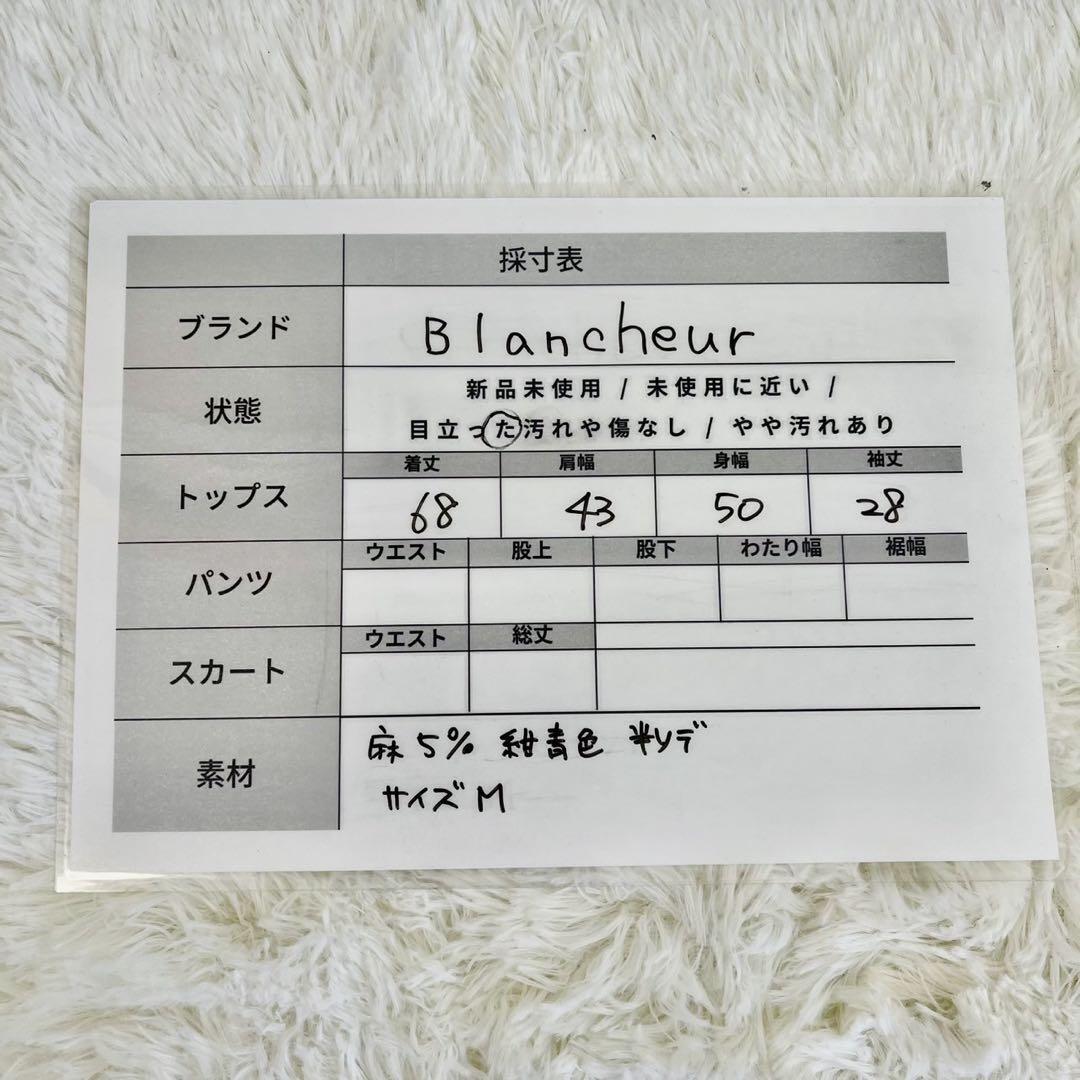 採寸表
ブランド Blancheur
状態 新品未使用 / 未使用に近い /
目立った汚れや傷なし / やや汚れあり
トップス 着丈 肩幅 身幅 袖丈
68 43 50 28
パンツ ウエスト 股上 股下 わたり幅 裾幅
スカート ウエスト 総丈
素材 麻5% 紺青色 半ソデ
サイズM